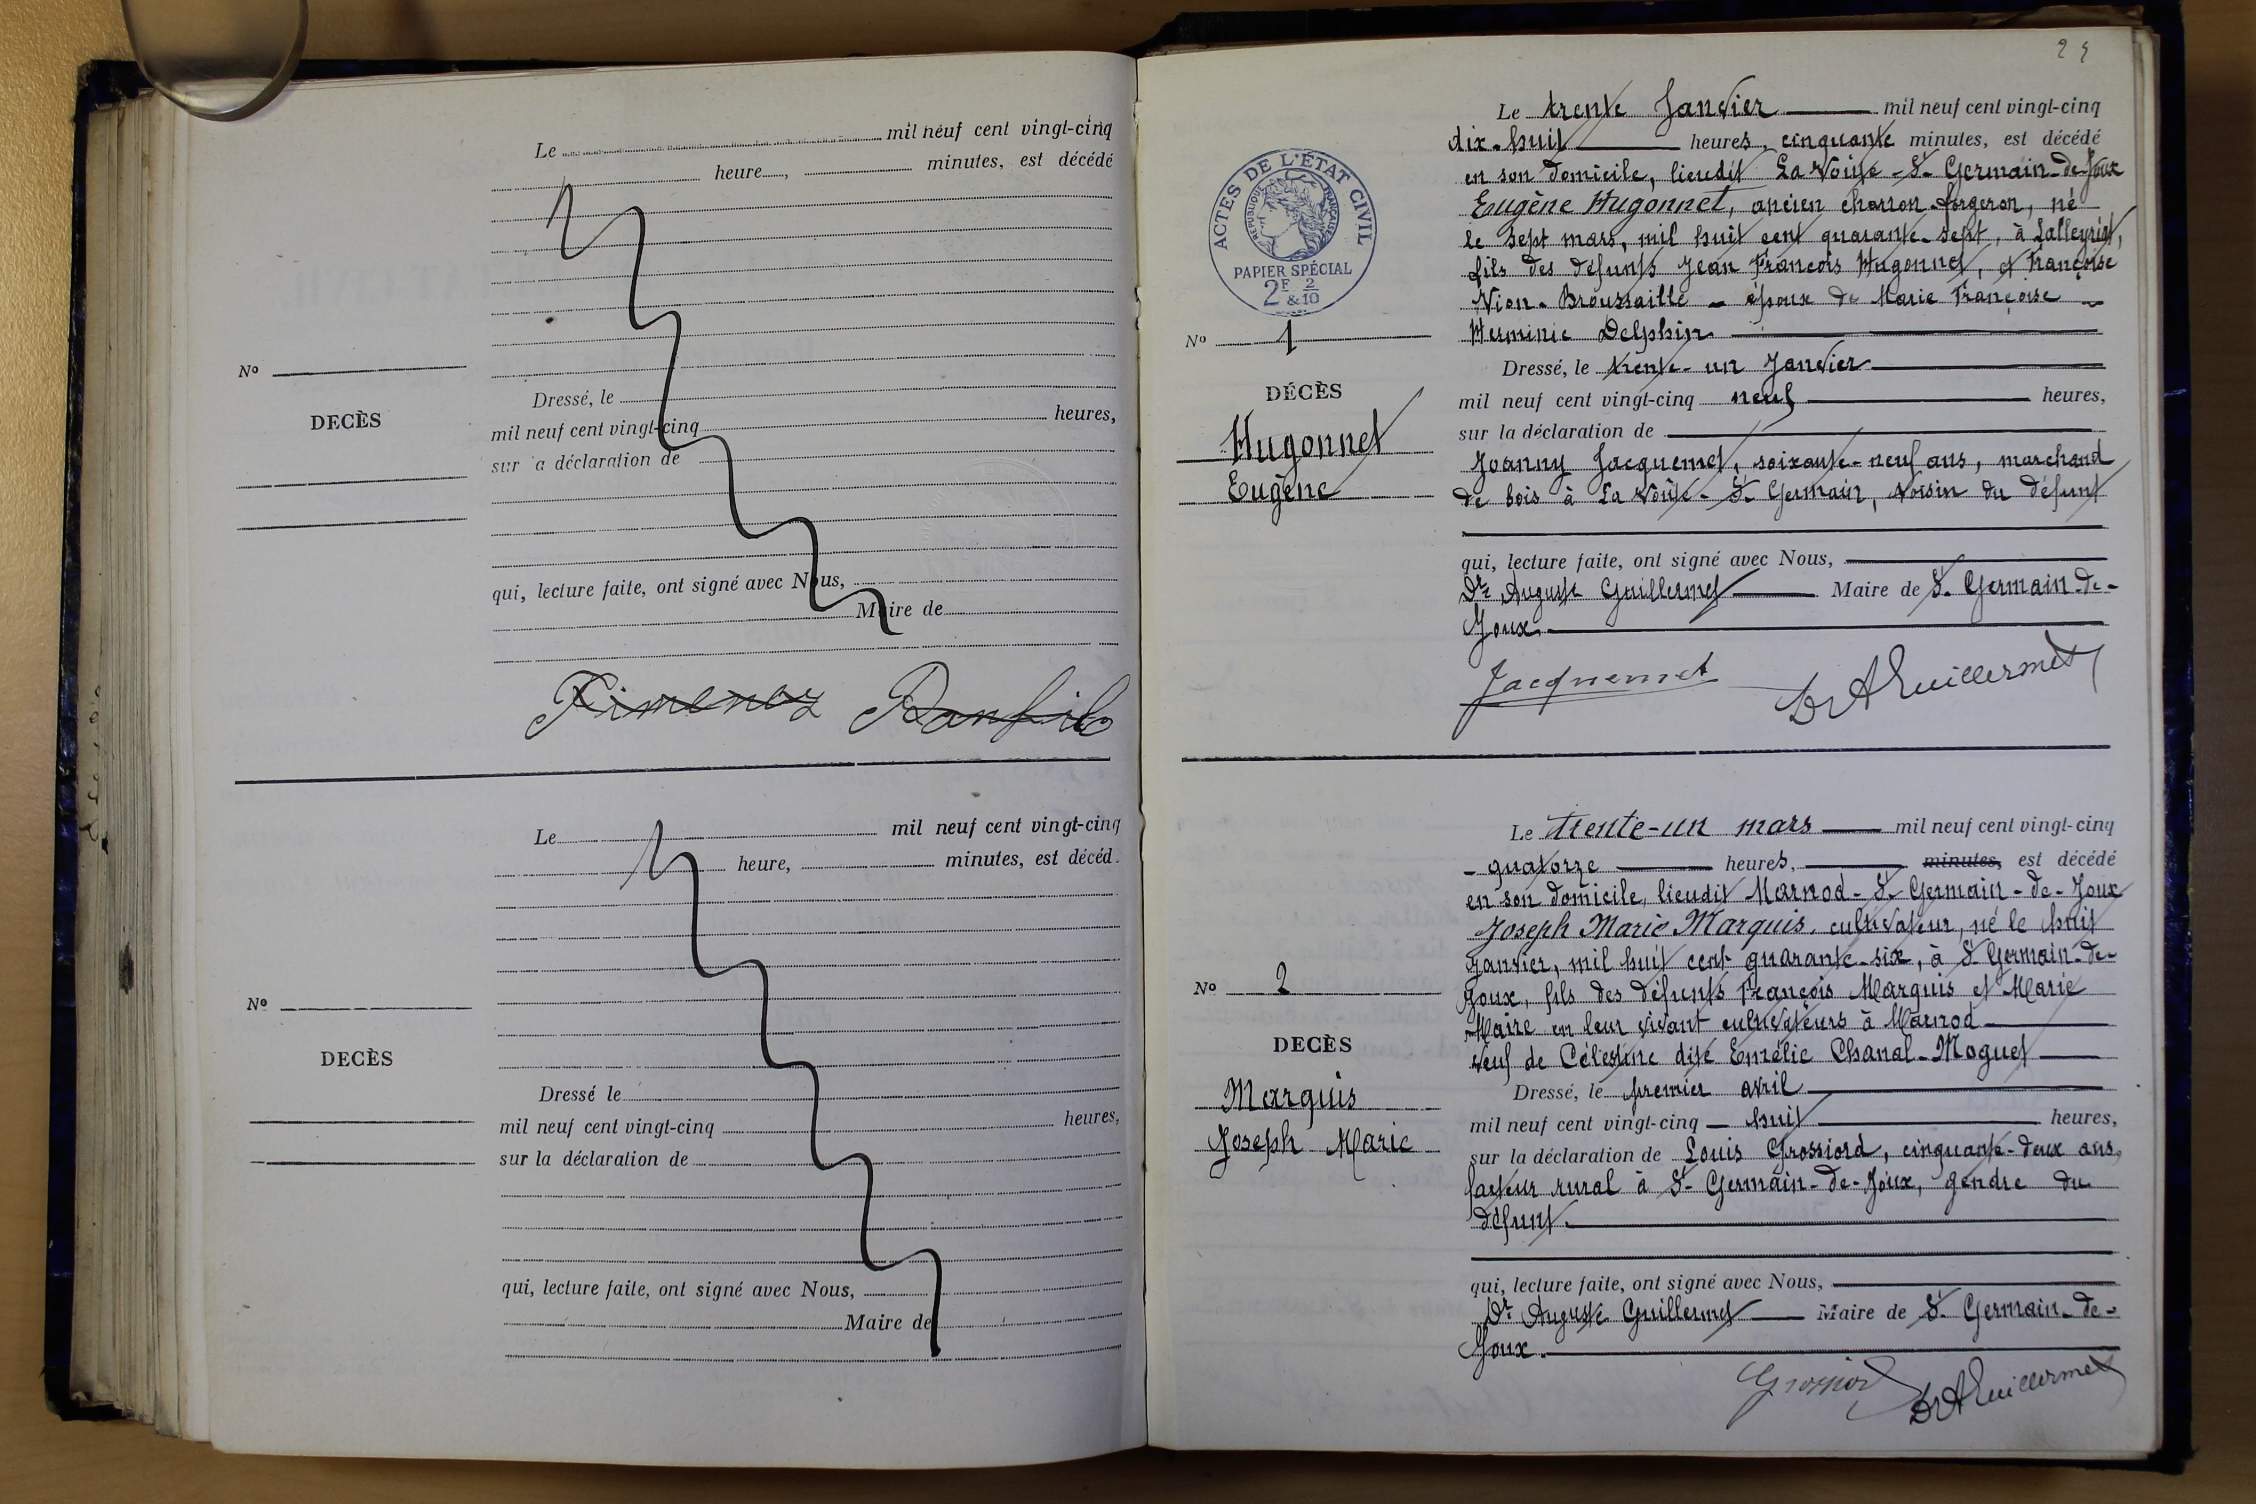 Le mil neuf cent vingt-cinq
heure , minutes, est décédé
Nº
DECÈS
Dressé, le
mil neuf cent vingt-cinq heures,
sur a déclaration de
qui, lecture faite, ont signé avec Nous,
Maire de
Ximenez Panfilo
Le mil neuf cent vingt-cinq
heure, minutes, est décéd
Nº
DECÈS
Dressé le
mil neuf cent vingt-cinq heures,
sur la déclaration de
qui, lecture faite, ont signé avec Nous,
Maire de
Le trente Janvier mil neuf cent vingt-cinq
dix-huit heures, cinquante minutes, est décédé
en son domicile, lieudit La Voûte - St Germain-de-Joux
Eugène Hugonnet, ancien charron-forgeron, né
le sept mars, mil huit cent quarante-sept, à Lalleyriat,
fils des défunts Jean François Hugonnet, et Françoise
Nion-Broussaille - époux de Marie Françoise
Herminie Delphin
Dressé, le trente-un Janvier
mil neuf cent vingt-cinq neuf heures,
sur la déclaration de
Joanny Jacquemet, soixante-neuf ans, marchand
de bois à La Voûte - St Germain, voisin du défunt
qui, lecture faite, ont signé avec Nous,
Dr Auguste Guillermet Maire de St Germain-de-
Joux.
Jacquemet Dr A Guillermet
ACTES DE L'ÉTAT CIVIL
RÉPUBLIQUE FRANÇAISE
PAPIER SPÉCIAL
2F & 2/10
Nº 1
DÉCÈS
Hugonnet
Eugène
Le trente-un mars mil neuf cent vingt-cinq
quatorze heures, minutes, est décédé
en son domicile, lieudit Marnod - St Germain-de-Joux
Joseph Marie Marquis, cultivateur, né le huit
janvier, mil huit cent quarante-six, à St Germain-de-
Joux, fils des défunts François Marquis et Marie
Maire en leur vivant cultivateurs à Marnod
veuf de Célestine dite Emélie Chanal-Moguet
Dressé, le premier avril
mil neuf cent vingt-cinq huit heures,
sur la déclaration de Louis Grossiord, cinquante-deux ans,
facteur rural à St Germain-de-Joux, gendre du
défunt.
qui, lecture faite, ont signé avec Nous,
Dr Auguste Guillermet Maire de St Germain-de-
Joux.
Grossiord Dr A Guillermet
Nº 2
DECÈS
Marquis
Joseph Marie